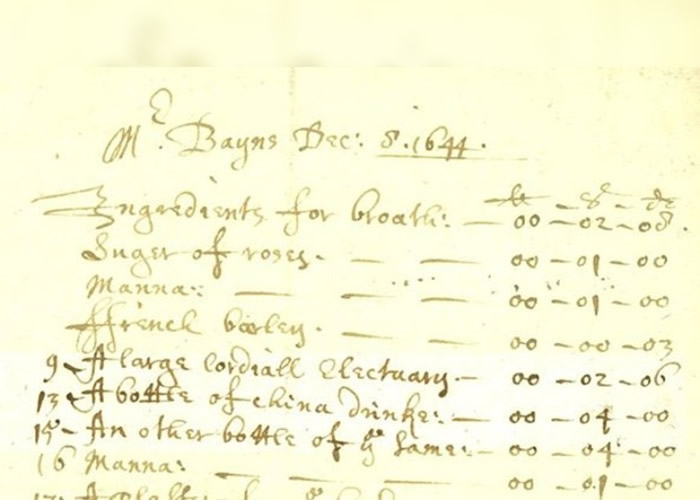 Mr. Bayns Dec: 8. 1644.
li - s - d
Ingredients for broath: — 00 - 02 - 08.
Suger of roses. — — 00 - 01 - 00
Manna: — — — 00 - 01 - 00
ffrench barley. — — 00 - 00 - 03
9 - A large Cordiall Electuary. — 00 - 02 - 06
13 - A bottle of China drinke: — 00 - 04 - 00
15 - An other bottle of ye same: — 00 - 04 - 00
16 Manna: — — — 00 - 01 - 00